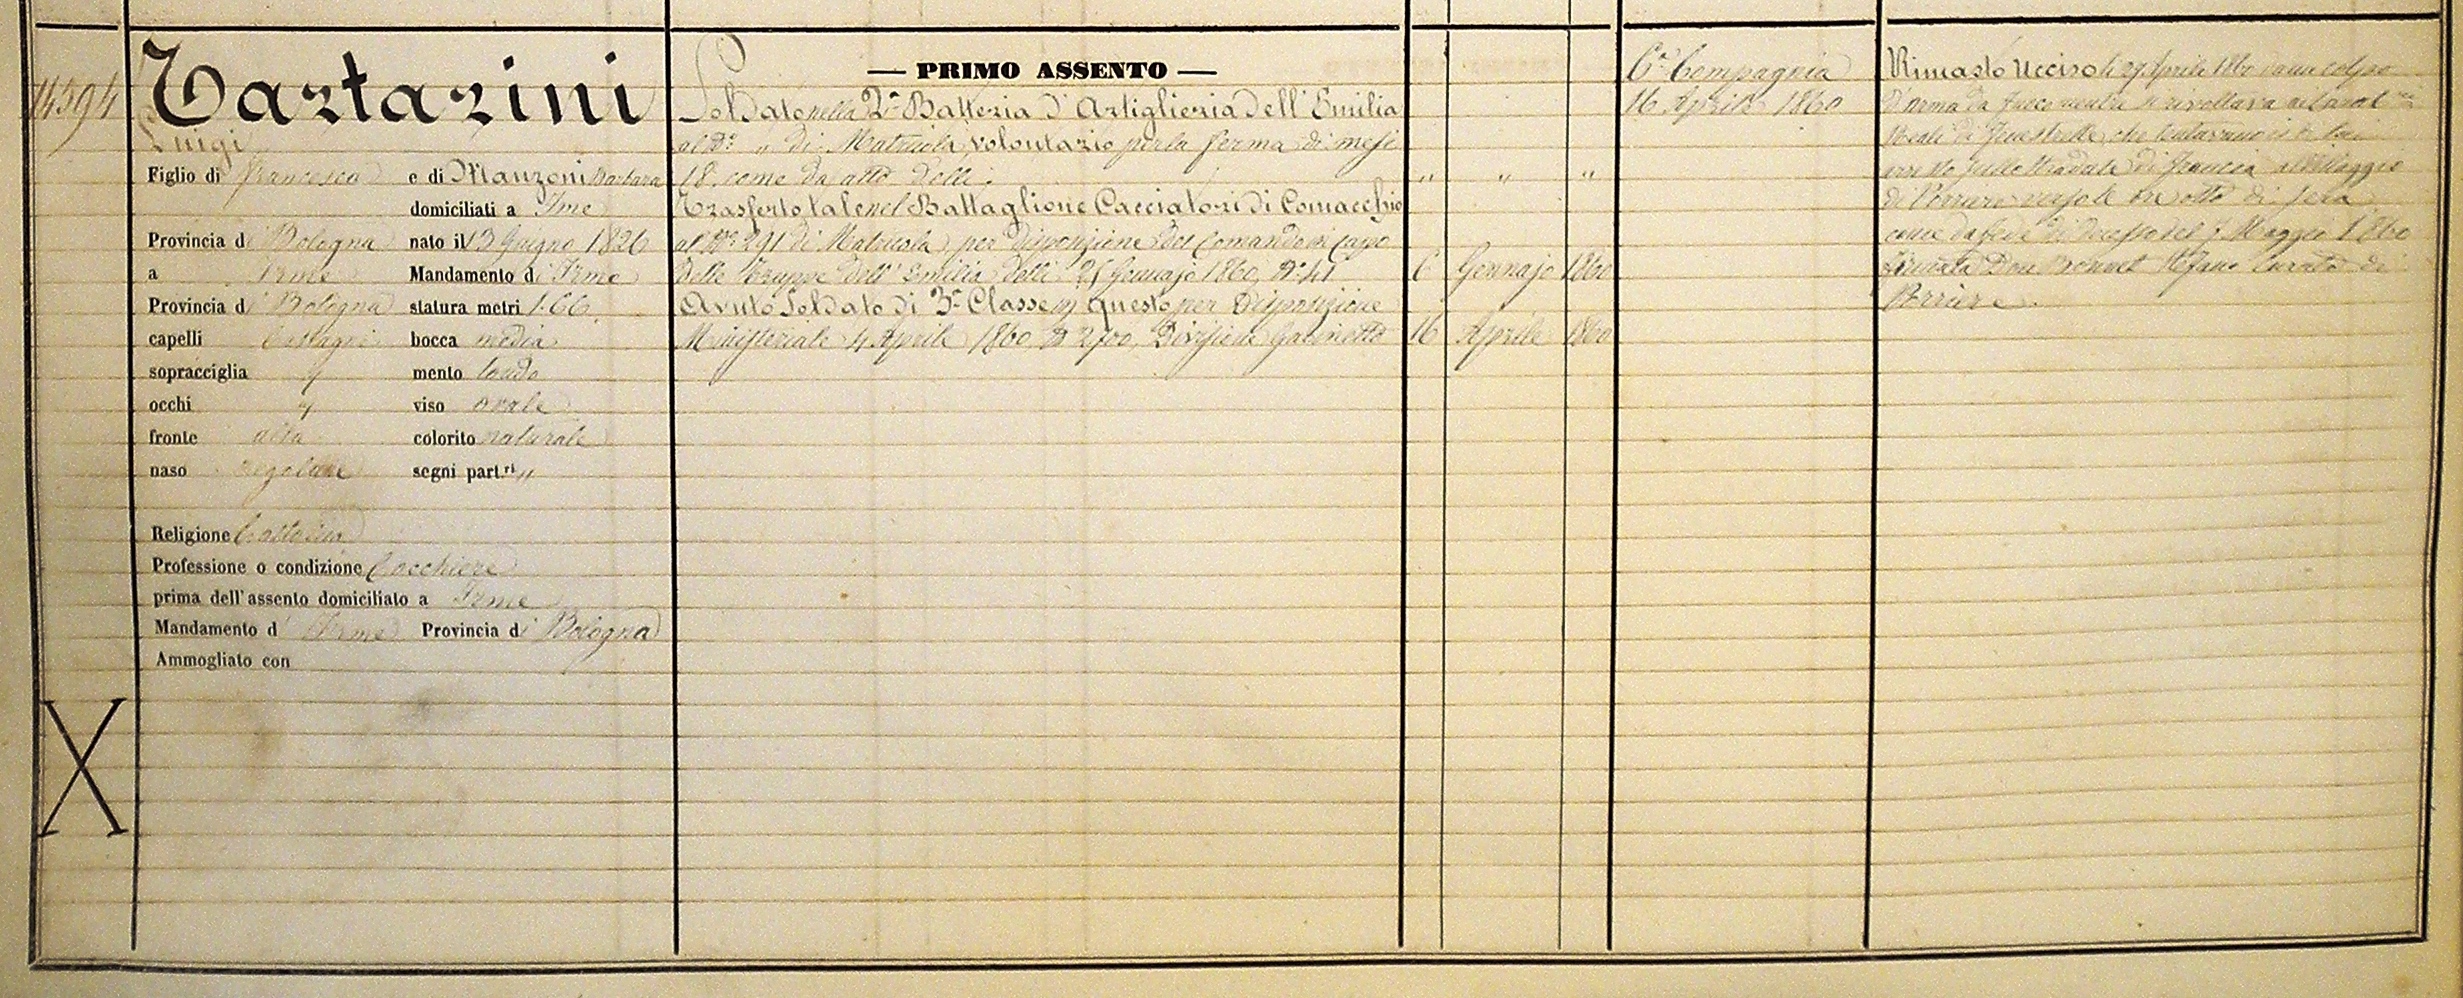 14594
Tartarini
Luigi
Figlio di Francesco e di Manzoni Barbara
domiciliati a Irme
Provincia di Bologna nato il 13 Giugno 1826
a Irme Mandamento di Irme
Provincia di Bologna statura metri 1.66
capelli Castagni bocca media
sopracciglia " mento tondo
occhi " viso ovale
fronte alta colorito naturale
naso regolare segni part.ri "
Religione Cattolica
Professione o condizione Cocchiere
prima dell'assento domiciliato a Irme
Mandamento d' Irme Provincia di Bologna
Ammogliato con
X
— PRIMO ASSENTO —
Soldato nella 2a Batteria d'Artiglieria dell'Emilia
al No " di Matricola volontario per la ferma di mesi
18. come da atto delli. " " "
Trasferto tale nel Battaglione Cacciatori di Comacchio
al No 291 di Matricola per disposizione del Comando in Capo
delle Truppe dell'Emilia delli 25 Gennajo 1860, No 41 6 Gennajo 1860
Avuto Soldato di 3a Classe in questo per Disposizione
Ministeriale 4 Aprile 1860 No 2700, Divisione Gabinetto 16 Aprile 1860
6a Compagnia
16 Aprile 1860
Rimasto ucciso li 27 Aprile 1860 da un colpo
d'arma da fuoco mentre si rivoltava ai Carab.ri
Reali di Fenestrelle, che tentavano il di lui
arresto sullo stradale di Francia al villaggio
di Perriere verso le ore otto di sera
come da fede di decesso del 7 Maggio 1860
firmata Don Bonnet Stefano Curato di
Perriere.